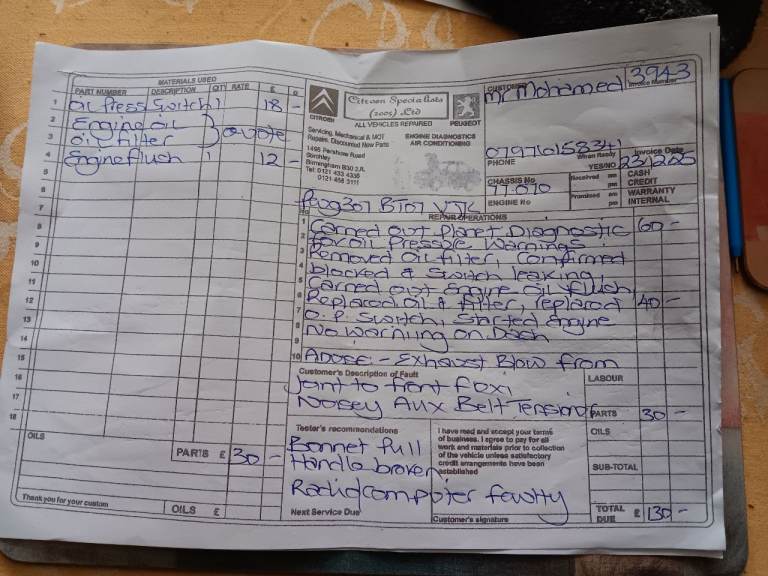 MATERIALS USED
PART NUMBER DESCRIPTION QTY RATE £
1 Oil Press Switch 1 18 -
2 Engine oil
3 Oil filter quote
4 Engine flush 1 12 -
5
6
7
8
9
10
11
12
13
14
15
16
17
18
OILS
PARTS £ 30 -
Thank you for your custom
OILS £
CITROËN
Citroen Specialists
(2005) Ltd
ALL VEHICLES REPAIRED
PEUGEOT
Servicing, Mechanical & MOT
Repairs. Discounted New Parts
ENGINE DIAGNOSTICS
AIR CONDITIONING
1495 Pershore Road
Stirchley
Birmingham B30 2JL
Tel: 0121 433 4336
0121 458 3111
Mr Mohamed
3943
Invoice Number
PHONE
When Ready
YES/NO
Invoice Date
CHASSIS No
77.070
ENGINE No
Received am pm
Promised am pm
CASH
CREDIT
WARRANTY
INTERNAL
Peug 307 BT07
REPAIR OPERATIONS
1 Carried out Planet Diagnostic 60 -
2 For oil Pressure Warnings
3 Removed oil filter, Confirmed
4 blocked & Switch leaking,
5 Carried out Engine oil Flush,
6 Replaced oil & filter, replaced 40 -
7 O.P. Switch, Started Engine
8 No Warning on Dash
9
10 Advise - Exhaust Blow from
Customer's Description of Fault
Joint to front flexi,
Noisey Aux Belt Tensionor
LABOUR
PARTS 30 -
OILS
SUB-TOTAL
TOTAL DUE £ 130 -
Tester's recommendations
Bonnet pull
Handle broken
Radio computer faulty
Next Service Due
I have read and accept your terms
of business. I agree to pay for all
work and materials prior to collection
of the vehicle unless satisfactory
credit arrangements have been
established
Customer's signature